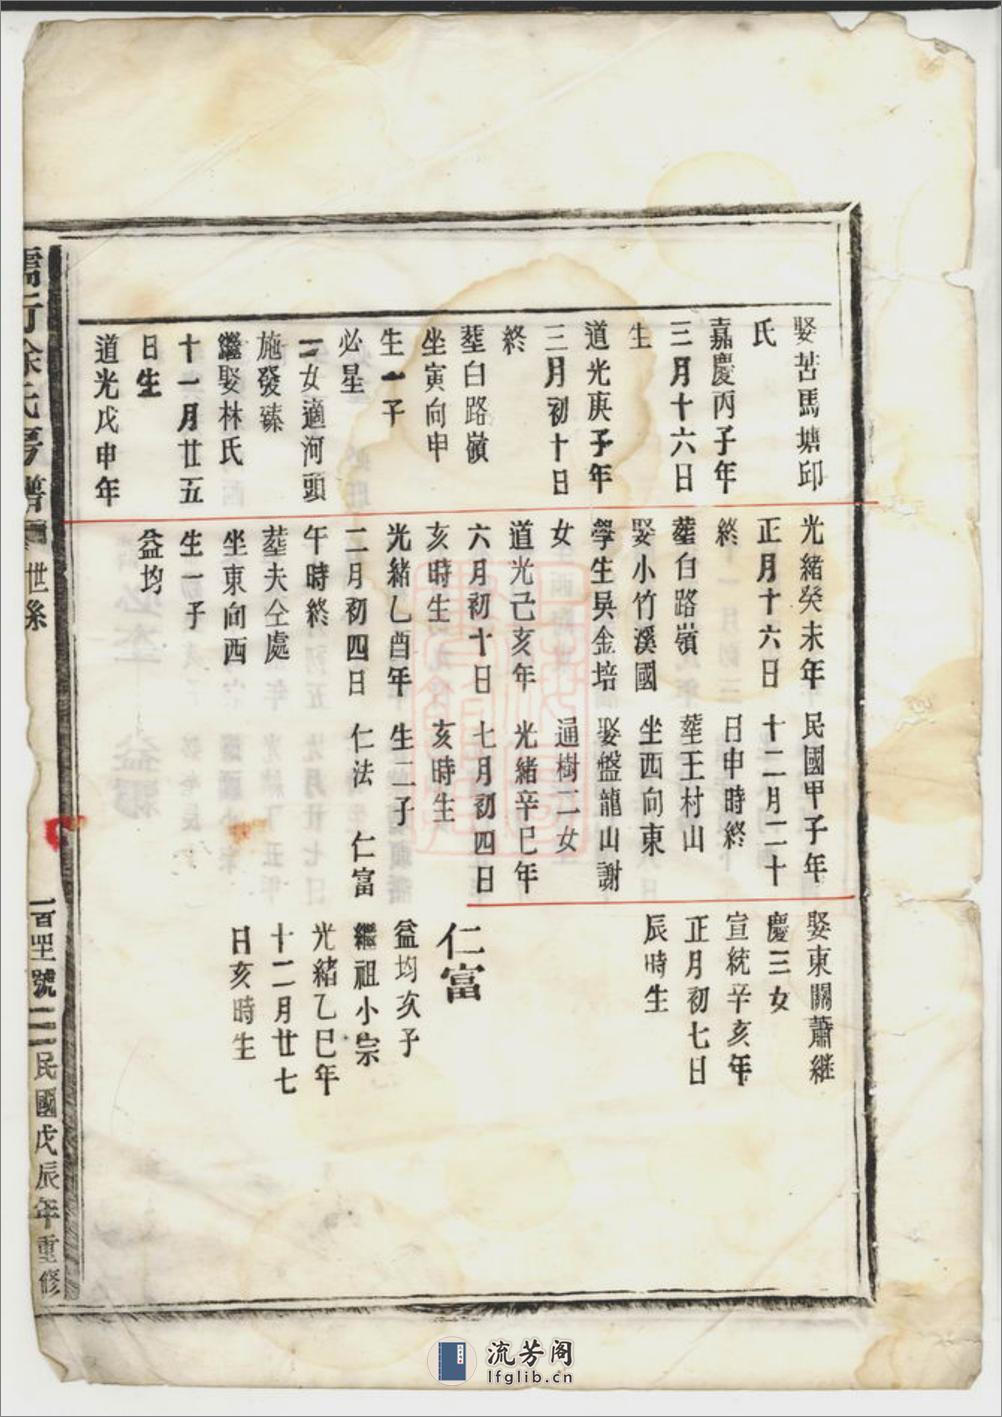 娶苦馬塘邱
氏
嘉慶丙子年
三月十六日
生
道光庚子年
三月初十日
終
塟白路嶺
坐寅向申
生一子
必星
二女適河頭
施發臻
繼娶林氏
十一月廿五
日生
道光戊申年
光緒癸未年
正月十六日
終
塟白路嶺
娶小竹溪國
學生吳金培
女
道光己亥年
六月初十日
亥時生
光緒乙酉年
二月初四日
午時終
塟夫仝處
坐東向西
生一子
益均
民國甲子年
十二月二十
日申時終
塟王村山
坐西向東
娶盤龍山謝
通樹二女
光緒辛巳年
七月初四日
亥時生
生二子
仁法 仁富
娶東關蕭継
慶三女
宣統辛亥年
正月初七日
辰時生
仁富
益均次子
繼祖小宗
光緒乙巳年
十二月廿七
日亥時生
儒行徐氏房譜
世系
一百四號
民國戊辰年重修
流芳阁
lfglib.cn